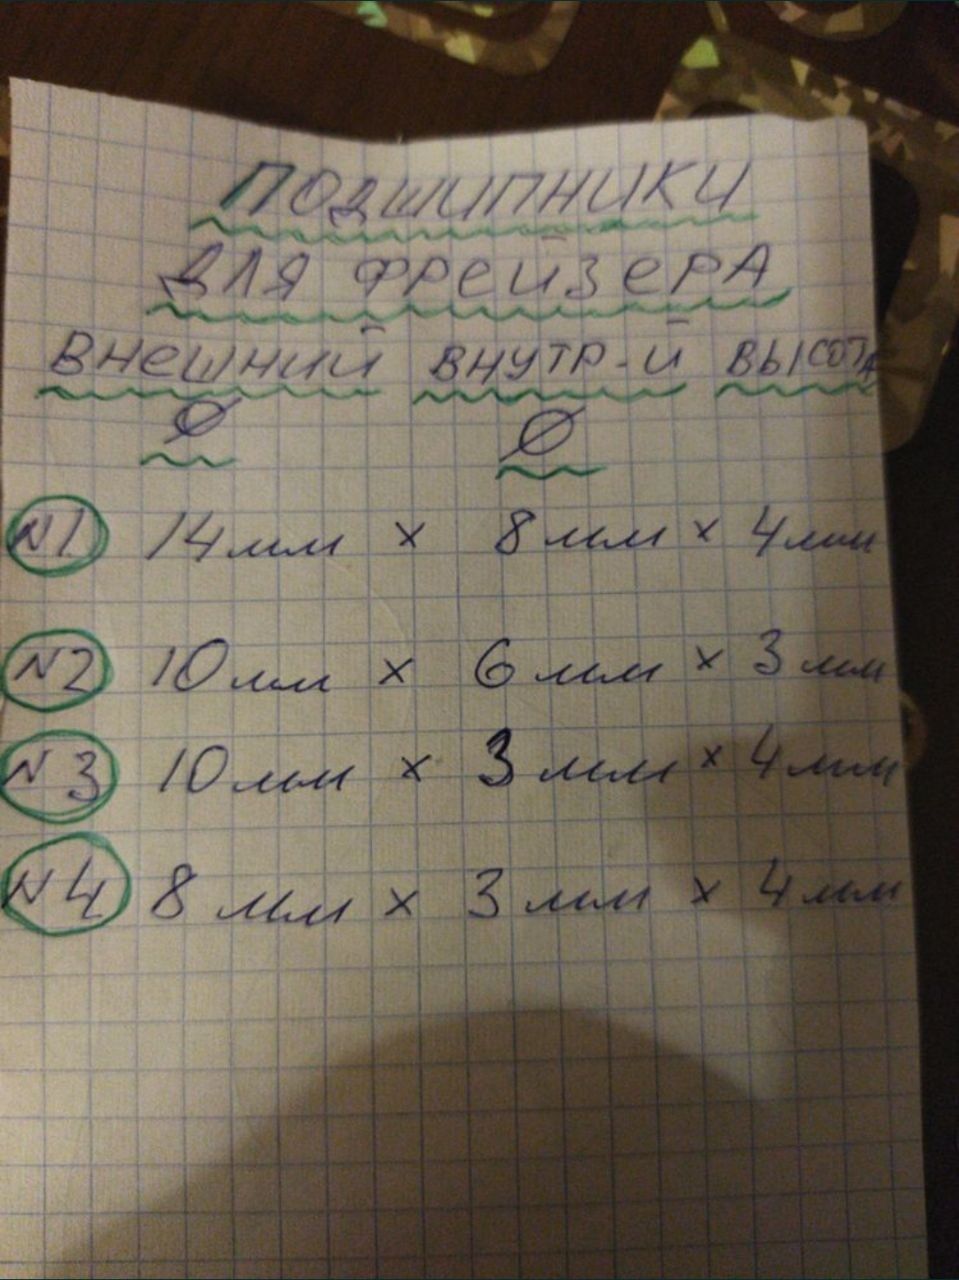 ПОДШИПНИКИ
ДЛЯ ФРЕЙЗЕРА
ВНЕШНИЙ ВНУТР-Й ВЫСОТА
Ø Ø
N1 14мм х 8мм х 4мм
N2 10мм х 6мм х 3мм
N3 10мм х 3мм х 4мм
N4 8мм х 3мм х 4мм